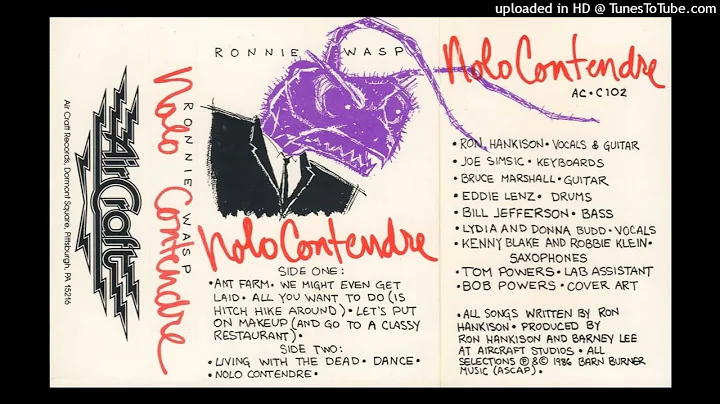 uploaded in HD @ TunesToTube.com
AirCraft
Air Craft Records, Dormont Square, Pittsburgh, PA 15216
RONNIE WASP
Nolo Contendre
RONNIE WASP
Nolo Contendre
SIDE ONE:
•ANT FARM• WE MIGHT EVEN GET
LAID• ALL YOU WANT TO DO (IS
HITCH HIKE AROUND)• LET'S PUT
ON MAKEUP (AND GO TO A CLASSY
RESTAURANT)•
SIDE TWO:
•LIVING WITH THE DEAD• DANCE•
•NOLO CONTENDRE•
Nolo Contendre
AC•C102
•RON HANKISON• VOCALS & GUITAR
•JOE SIMSIC• KEYBOARDS
•BRUCE MARSHALL•GUITAR
•EDDIE LENZ• DRUMS
•BILL JEFFERSON• BASS
•LYDIA AND DONNA BUDD• VOCALS
•KENNY BLAKE AND ROBBIE KLEIN•
SAXOPHONES
•TOM POWERS•LAB ASSISTANT
•BOB POWERS•COVER ART
•ALL SONGS WRITTEN BY RON
HANKISON• PRODUCED BY
RON HANKISON AND BARNEY LEE
AT AIRCRAFT STUDIOS• ALL
SELECTIONS ℗&© 1986 BARN BURNER
MUSIC (ASCAP)•